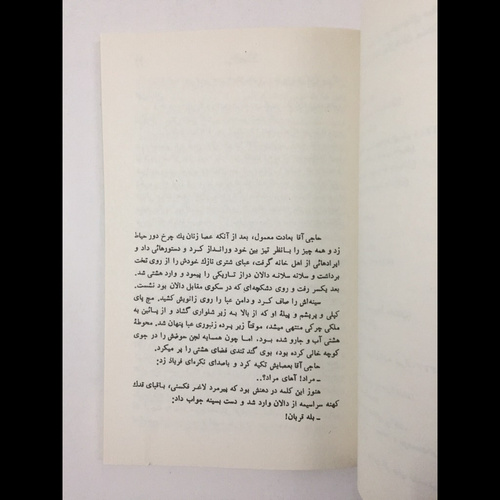 حاجی آقا بعادت معمول، بعد از آنکه عصا زنان یك چرخ دور حیاط
زد و همه چیز را بانظر تیز بین خود ورانداز کرد و دستورهائی داد و
ایرادهائی از اهل خانه گرفت، عبای شتری نازك خودش را از روی تخت
برداشت و سلانه سلانه دالان دراز تاریکی را پیمود و وارد هشتی شد.
بعد یکسر رفت و روی دشکچه‌ای که در سکوی مقابل دالان بود نشست.
سینه‌اش را صاف کرد و دامن عبا را روی زانویش کشید. مچ پای
کپلی و پرپشم و پیلهٔ او که از بالا به زیر شلواری گشاد و از پائین به
ملکی چرکی منتهی میشد، موقتاً زیر پرده زنبوری عبا پنهان شد. محوطهٔ
هشتی آب و جارو شده بود. اما چون همسایه لجن حوضش را در جوی
کوچه خالی کرده بود، بوی گند تندی فضای هشتی را پر میکرد.
حاجی آقا بعصایش تکیه کرد و باصدای نکره‌ای فریاد زد:
ـ مراد! آهای مراد؟..
هنوز این کلمه در دهنش بود که پیرمرد لاغر فکسنی، باقبای قدك
کهنه سراسیمه از دالان وارد شد و دست بسینه جواب داد:
ـ بله قربان!